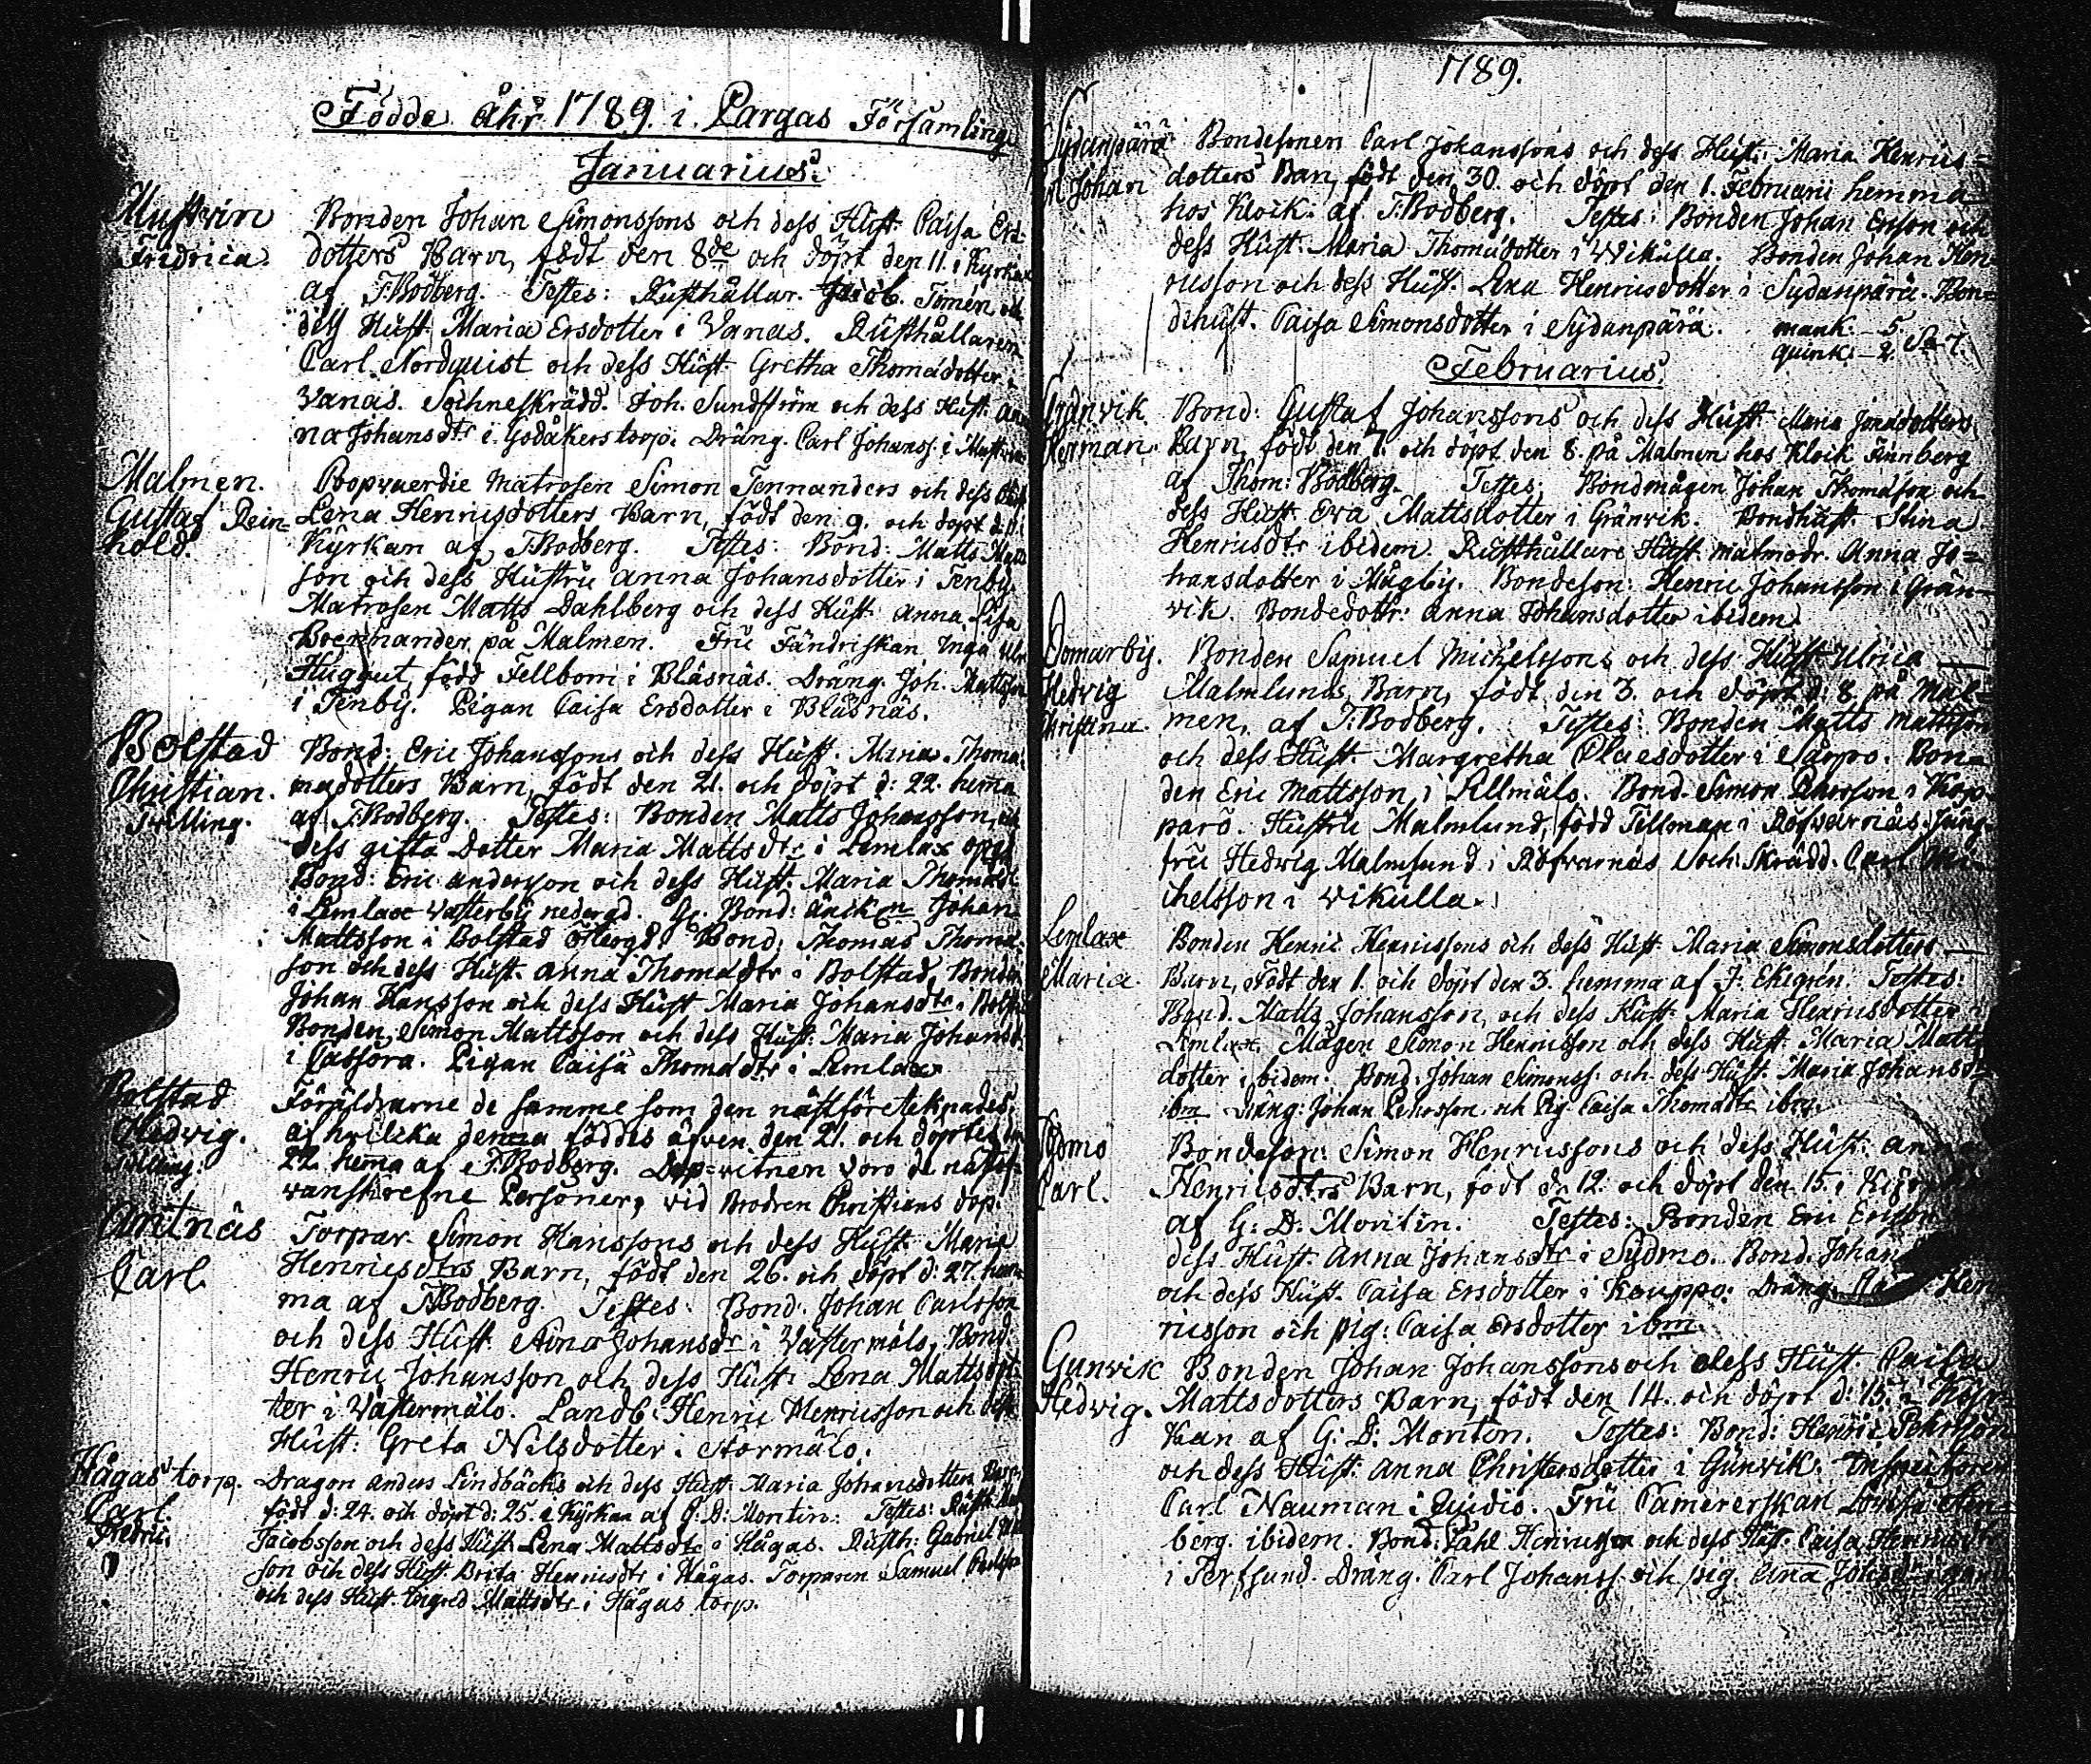 Födde åhr 1789. i Pargas Församling
Januarius.
Mustvin
Fredrica.
Bonden Johan Simonssons och dess Hust. Caisa Ers-
dotters Barn, födt den 8de och döpt den 11. i Kyrkan
af T:Bodberg. Testes: Rusthållar. Tomén och
dess Hust. Maria Ersdotter i Vanas. Rusthållaren
Carl Nordquist och dess Hust Gretha Thomasdotter
Vanas. Sochneskrädd. Joh. Sundström och dess Hust. An
na Johansdtr i Godåkerstorp. Dräng. Carl Johanss. i
Malmen.
Gustaf Rein-
hold.
Coopvaerdie Matrosen Simon Tennanders och dess
Lena Henricsdotters Barn, födt den 9. och döpt d.
Kyrkan af T:Bodberg. Testes: Bond: Matts Matts
son och dess Hustru Anna Johansdotter i Tenby.
Matrosen Matts Dahlberg och dess Hust. Anna Lisa
på Malmen. Fru Fändriskan Inga Ulr
född Fellbom i Bläsnäs. Dräng. Joh. Mattsson
i Tenby. Pigan Caisa Ersdotter i Bläsnäs.
Bolstad
Christian.
Twilling.
Bond: Eric Johanssons och dess Hust. Maria Thoma-
madotters Barn, födt den 21. och döpt d: 22. hemma
af T:Bodberg. Testes: Bonden Matts Johansson, och
dess gifta Dotter Maria Mattsdtr i Lemlax
Bond: Eric Andersson och dess Hust. Maria Thomasd
i Lemlax Westerby nedergd. Bond: änk Johan
Mattsson i Bolstad östergd. Bond: Thomas Thoma
son och dess Hust. Anna Thomadtr i Bolstad, Bonden
Johan Hansson och dess Hust Maria Johansdtr i Bolst
Bonden Simon Mattsson och dess Hust: Maria Johansd.
i Cassora. Pigan Caisa Thomadtr i Lemlax
Bolstad
Hedwig.
Twilling:
Föräldrarne de samme som den näst företecknades,
af hvilcka denna föddes äfven den 21. och döptes den
22. hemma af T:Bodberg. Dop-witnen voro de näst of-
wanskrefne Personer, vid Brodren Christians dop.
Antnäs
Carl
Torpar. Simon Hanssons och dess Hust. Maria
Henricsdtrs Barn, födt den 26. och döpt d: 27. hem-
ma af T:Bodberg. Testes: Bond. Johan Carlsson
och dess Hust. Stina Johansdr i Västermälo, Bond.
Henric Johansson och dess Hust. Lena Mattsdot-
ter i Västermälo. Landb. Henric Henricsson och dess
Hust: Greta Nilsdotter i Stormälo.
Hågas torp.
Carl
Fredric.
Dragon Anders Lindbäcks och dess Hust. Maria Johansdotters Barn,
födt d: 24. och döpt d: 25. i Kyrkan af G: D: Montin. Testes: Rusth.
Jacobsson och dess Hust. Lena Mattsdtr i Hågas. Rusth: Gabriel
son och dess Hust. Brita Henricsdtr i Hågas. Torparen Samuel Carlsson
och dess Hust. Ingred Mattsdtr i Hågas torp.
1789.
Sydänpärä
Johan
Bondesonen Carl Johanssons och dess Hust: Maria Henrics-
dotters Barn, födt den 30. och döpt den 1. Februarii hemma
hos Klock. af T:Bodberg. Testes: Bonden Johan Ersson och
dess Hust. Maria Thomadotter i Wikulla. Bonden Johan Hen-
ricsson och dess Hust. Lena Henricsdotter i Sydänpärä. Bon-
dehust. Caisa Simonsdotter i Sydänpärä. mank. - 5.
quink. - 2. Sa 7.
Februarius.
Gränvik.
Herman.
Bond: Gustaf Johanssons och dess Hust. Maria Jonsdotters
Barn, födt den 7. och döpt den 8. på Malmen hos Klock Finnberg
af Thom: Bodberg. Testes: Bondmågen Johan Thomason och
dess Hust. Eva Mattsdotter i Gränvik. Bondhust. Stina
Henricsdtr ibidem. Rusthållare Hust. Anna Jo-
hansdotter i Mågby. Bondeson: Henric Johansson i Grän-
vik. Bondedottr: Anna Johansdotter ibidem.
Domarby.
Hedvig
Christina.
Bonden Samuel Michelssons och dess Hust Ulrica
Malmlunds Barn, födt den 3. och döpt d: 8. på Mal-
men, af T:Bodberg. Testes: Bonden Matts Mattsson
och dess Hust. Margretha Claesdotter i Sarpo. Bon-
den Eric Mattsson i Lillmälo. Bond. Simon Pehrsson i Kop-
paro. Hustru Malmlund, född Tillman i Röfvarnäs. Jung-
fru Hedvig Malmlund i Röfvarnäs Soch: Skrädd. Carl Mi-
chelsson i Wikulla.
Lemlax
Maria.
Bonden Henric Henricssons och dess Hust. Maria Simonsdotters
Barn, födt den 1. och döpt den 3. hemma af J: Ekegrén. Testes:
Bond. Matts Johansson, och dess Hust. Maria Henricsdotter i
Lemlax. Mågen Simon Henricsson och dess Hust. Maria Matts
dotter ibidem. Bond. Johan Simonss. och dess Hust. Maria Johansd
ibm. Dräng: Johan Pehrsson och Pig. Caisa Thomadtr ibm.
Sydmo
Carl.
Bondeson: Simon Henricssons och dess Hust. Anna
Henricsdtrs Barn, födt d. 12. och döpt den 15. i Kyrkan
af G: D: Montin. Testes: Bonden Eric Ericsson
dess Hust. Anna Johansdtr i Sydmo. Bond. Johan
och dess Hust. Caisa Ersdotter i Kouppo. Dräng. Hen
ricsson och Pig: Caisa Ersdotter ibm.
Gunvik
Hedvig.
Bonden Johan Johanssons och dess Hust. Caisa
Mattsdotters Barn, födt den 14. och döpt d: 15. i Kyr-
kan af G: D: Montin. Testes: Bond: Henric Pehrsson
och dess Hust. Anna Christersdotter i Gunvik. Inspectoren
Carl Nauman i Qvidio. Fru Camererskan Lovisa
berg ibidem. Bond: Påhl Henricsson och dess Hust. Caisa Henricsdtr
i Terfsund. Dräng. Carl Johanss. och pig.